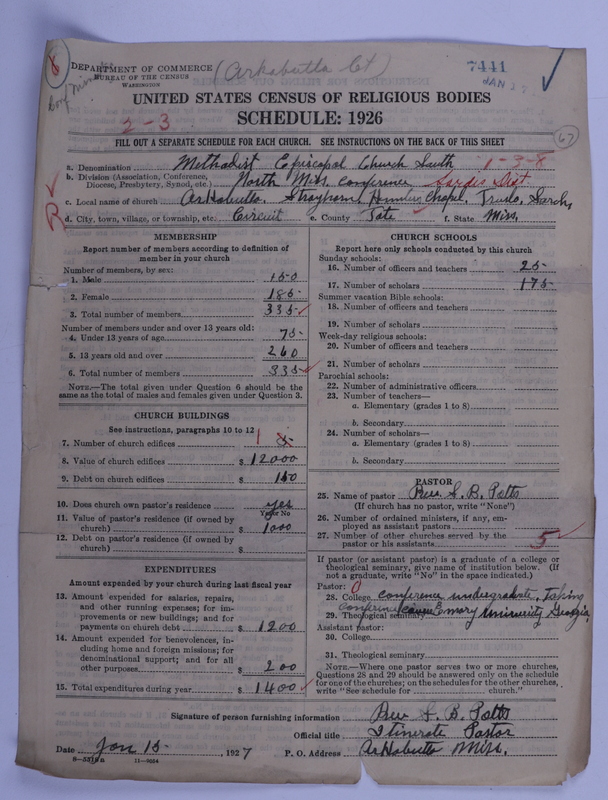 6
DEPARTMENT OF COMMERCE (Arkabutla Ct)
BUREAU OF THE CENSUS
WASHINGTON
7441
JAN 27
UNITED STATES CENSUS OF RELIGIOUS BODIES
2-3
SCHEDULE: 1926
FILL OUT A SEPARATE SCHEDULE FOR EACH CHURCH. SEE INSTRUCTIONS ON THE BACK OF THIS SHEET
67
a. Denomination Methodist Episcopal Church South 1-3-8
b. Division (Association, Conference, Diocese, Presbytery, Synod, etc.) North Miss. Conference Sardis Dist
c. Local name of church Arkabutla, Strayhorn, Hunters Chapel,
R
d. City, town, village, or township, etc. Circuit e. County Tate f. State Miss.
MEMBERSHIP
Report number of members according to definition of
member in your church
Number of members, by sex:
1. Male 150
2. Female 185
3. Total number of members 335
Number of members under and over 13 years old:
4. Under 13 years of age 75
5. 13 years old and over 260
6. Total number of members 335
NOTE.—The total given under Question 6 should be the
same as the total of males and females given under Question 3.
CHURCH BUILDINGS
See instructions, paragraphs 10 to 12
7. Number of church edifices 1 5
8. Value of church edifices $ 12000
9. Debt on church edifices $ 150
10. Does church own pastor's residence yes
Yes or No
11. Value of pastor's residence (if owned by
church) $ 1000
12. Debt on pastor's residence (if owned by
church) $
EXPENDITURES
Amount expended by your church during last fiscal year
13. Amount expended for salaries, repairs,
and other running expenses; for im-
provements or new buildings; and for
payments on church debt $ 1200
14. Amount expended for benevolences, in-
cluding home and foreign missions; for
denominational support; and for all
other purposes $ 200
15. Total expenditures during year $ 1400
CHURCH SCHOOLS
Report here only schools conducted by this church
Sunday schools:
16. Number of officers and teachers 25
17. Number of scholars 175
Summer vacation Bible schools:
18. Number of officers and teachers
19. Number of scholars
Week-day religious schools:
20. Number of officers and teachers
21. Number of scholars
Parochial schools:
22. Number of administrative officers
23. Number of teachers—
a. Elementary (grades 1 to 8)
b. Secondary
24. Number of scholars—
a. Elementary (grades 1 to 8)
b. Secondary
PASTOR
25. Name of pastor Rev. S. B. Potts
(If church has no pastor, write "None")
26. Number of ordained ministers, if any, em-
ployed as assistant pastors
27. Number of other churches served by the
pastor or his assistants 5
If pastor (or assistant pastor) is a graduate of a college or
theological seminary, give name of institution below. (If
not a graduate, write "No" in the space indicated.)
Pastor: 0
28. College conference undergraduate, Taking
29. Theological seminary conference course Emory University Georgia,
Assistant pastor:
30. College
31. Theological seminary
NOTE.—Where one pastor serves two or more churches,
Questions 28 and 29 should be answered only on the schedule
for one of the churches; on the schedules for the other churches,
write "See schedule for church."
Signature of person furnishing information Rev. S. B. Potts
Official title Itinerate Pastor
Date Jan 15 1927 P. O. Address Arkabutla Miss.